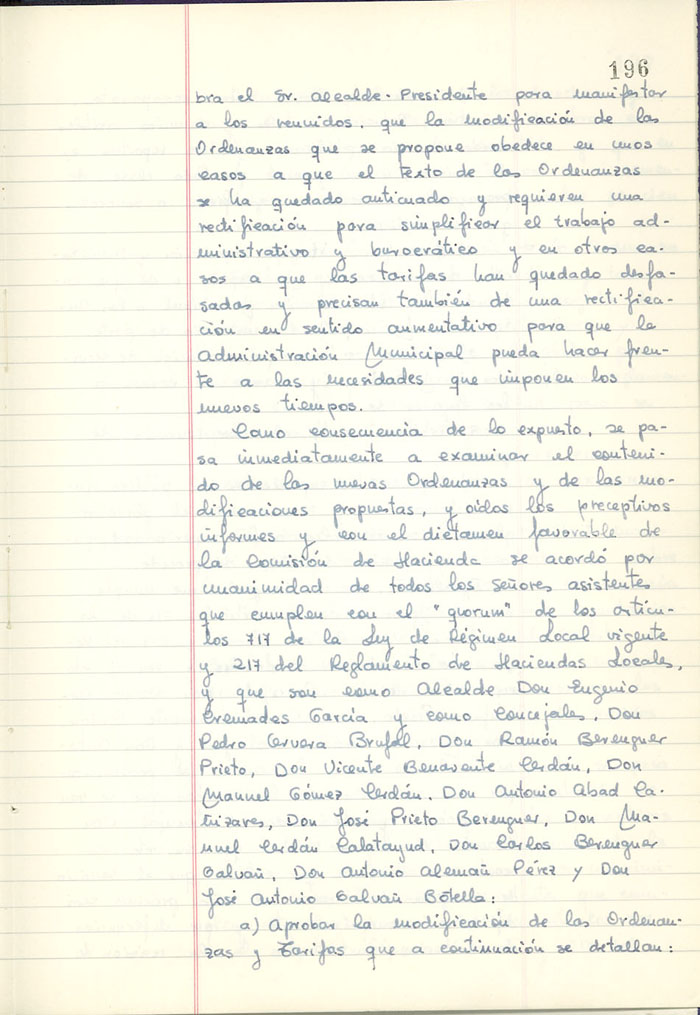 196
bra el Sr. Alcalde-Presidente para manifestar
a los reunidos, que la modificación de las
Ordenanzas que se propone obedece en unos
casos a que el texto de las Ordenanzas
se ha quedado anticuado y requieren una
rectificación para simplificar el trabajo ad-
ministrativo y burocrático y en otros ca-
sos a que las tarifas han quedado desfa-
sadas y precisan también de una rectifica-
ción en sentido aumentativo para que la
Administración Municipal pueda hacer fren-
te a las necesidades que imponen los
nuevos tiempos.
Como consecuencia de lo expuesto, se pa-
sa inmediatamente a examinar el conteni-
do de las nuevas Ordenanzas y de las mo-
dificaciones propuestas, y oídos los preceptivos
informes y con el dictamen favorable de
la Comisión de Hacienda se acordó por
unanimidad de todos los señores asistentes
que cumplen con el "quorum" de los artícu-
los 717 de la Ley de Régimen Local vigente
y 217 del Reglamento de Haciendas Locales,
y que son como Alcalde Don Eugenio
Cremades García y como Concejales, Don
Pedro Cervera Brufal, Don Ramón Berenguer
Prieto, Don Vicente Benavente Cerdán, Don
Manuel Gómez Cerdán, Don Antonio Abad Ca-
ñizares, Don José Prieto Berenguer, Don Ma-
nuel Cerdán Calatayud, Don Carlos Berenguer
Galvañ, Don Antonio Alemañ Pérez y Don
José Antonio Galvañ Botella:
a) Aprobar la modificación de las Ordenan-
zas y Tarifas que a continuación se detallan: